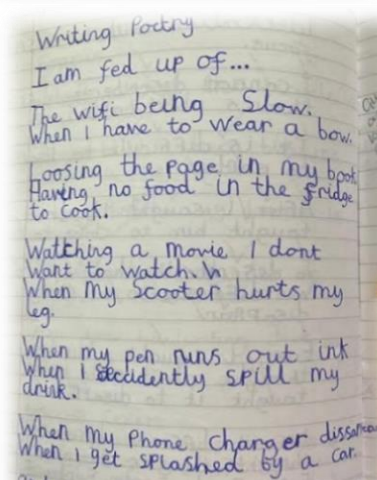 Writing Poetry
I am fed up of...
The wifi being Slow.
When I have to wear a bow.
Loosing the page in my book
Having no food in the fridge
to cook.
Watching a movie I dont
Want to watch.
When my scooter hurts my
leg.
When my pen runs out ink
When I accidently spill my
drink.
When my Phone charger
When I get splashed by a car.